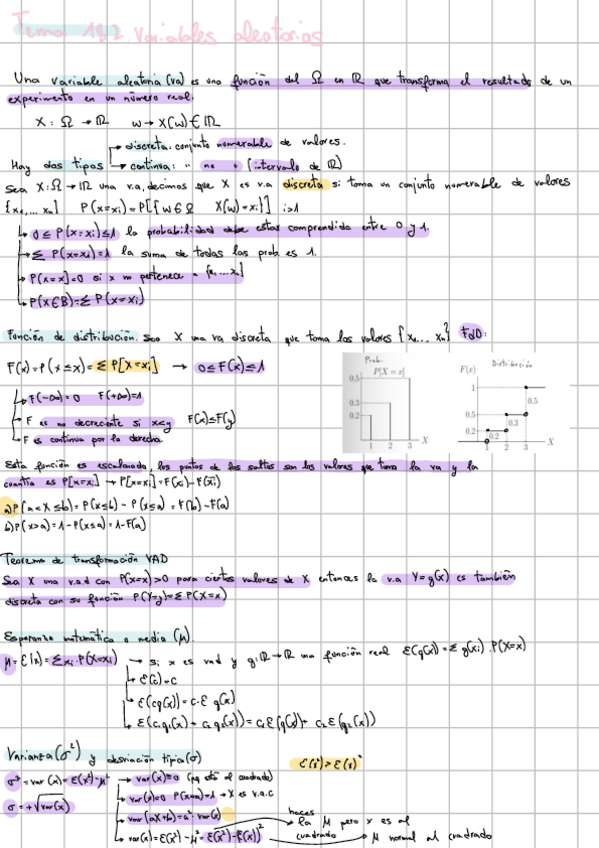 Tema 1&2. Variables aleatorias
Una variable aleatoria (va) es una función del Ω en ℝ que transforma el resultado de un
experimento en un número real.
X: Ω → ℝ   ω → X(ω) ∈ ℝ
Hay dos tipos → discreta: conjunto numerable de valores.
→ continua: " no " (intervalo de ℝ)
Sea X: Ω → ℝ una v.a, decimos que X es v.a discreta si toma un conjunto numerable de valores
{x₁,... xₙ}   P(x=xᵢ) = P[{ω ∈ Ω   X(ω)=xᵢ}]   i>1
→ 0 ≤ P(x=xᵢ) ≤ 1 la probabilidad debe estar comprendida entre 0 y 1.
→ Σ P(x=xᵢ)=1 la suma de todas las prob. es 1.
→ P(x=x)=0 si x no pertenece a {x,...xₙ}
→ P(X∈B)=Σ P(x=xᵢ)
Función de distribución. Sea X una va discreta que toma los valores {x₁... xₙ} FdD:
F(x)=P(x≤x)=Σ P[X=xᵢ] → 0≤F(x)≤1
→ F(-∞)=0   F(+∞)=1
→ F es no decreciente si x<y   F(x)≤F(y)
→ F es continua por la derecha
Prob.
P[X = x]
0.5
0.3
0.2
1 2 3 X
Distribución
F(x)
1
0.5
0.2
0.5
0.3
0.2
1 2 3 X
Esta función es escalonada, los puntos de los saltos son los valores que toma la va y la
cuantía es P[x=xᵢ] → P[x=xᵢ]=F(xᵢ)-F(xᵢ)
a) P(a<X≤b)=P(x≤b)-P(x≤a)=F(b)-F(a)
b) P(x>a)=1-P(x≤a)=1-F(a)
Teorema de transformación VAD
Sea X una v.a.d con P(x=x)>0 para ciertos valores de X entonces la v.a Y=g(x) es también
discreta con su función P(Y=y)=Σ P(X=x)
Esperanza matemática o media (μ).
μ=E(x)=Σxᵢ·P(X=xᵢ) → Si x es vad y g:ℝ→ℝ una función real E(g(x))=Σ g(xᵢ).P(X=x)
→ E(c)=c
→ E(cg(x))=c·E g(x)
→ E(c₁g₁(x)+c₂g₂(x))=c₁E(g(x))+c₂E(g₂(x))
Varianza (σ²) y desviación típica (σ)   E(x²)≥E(x)²
σ²=var(x)=E(x²)-μ² → var(x)≥0 (pq está al cuadrado)
σ=+√var(x) → var(x)=0 P(x=a)=1 → X es v.a.c
→ var(aX+b)=a² var(x)
→ var(x)=E(x²)-μ²=E(x²)-E(x)²
haces la μ pero x es al cuadrado
μ normal al cuadrado